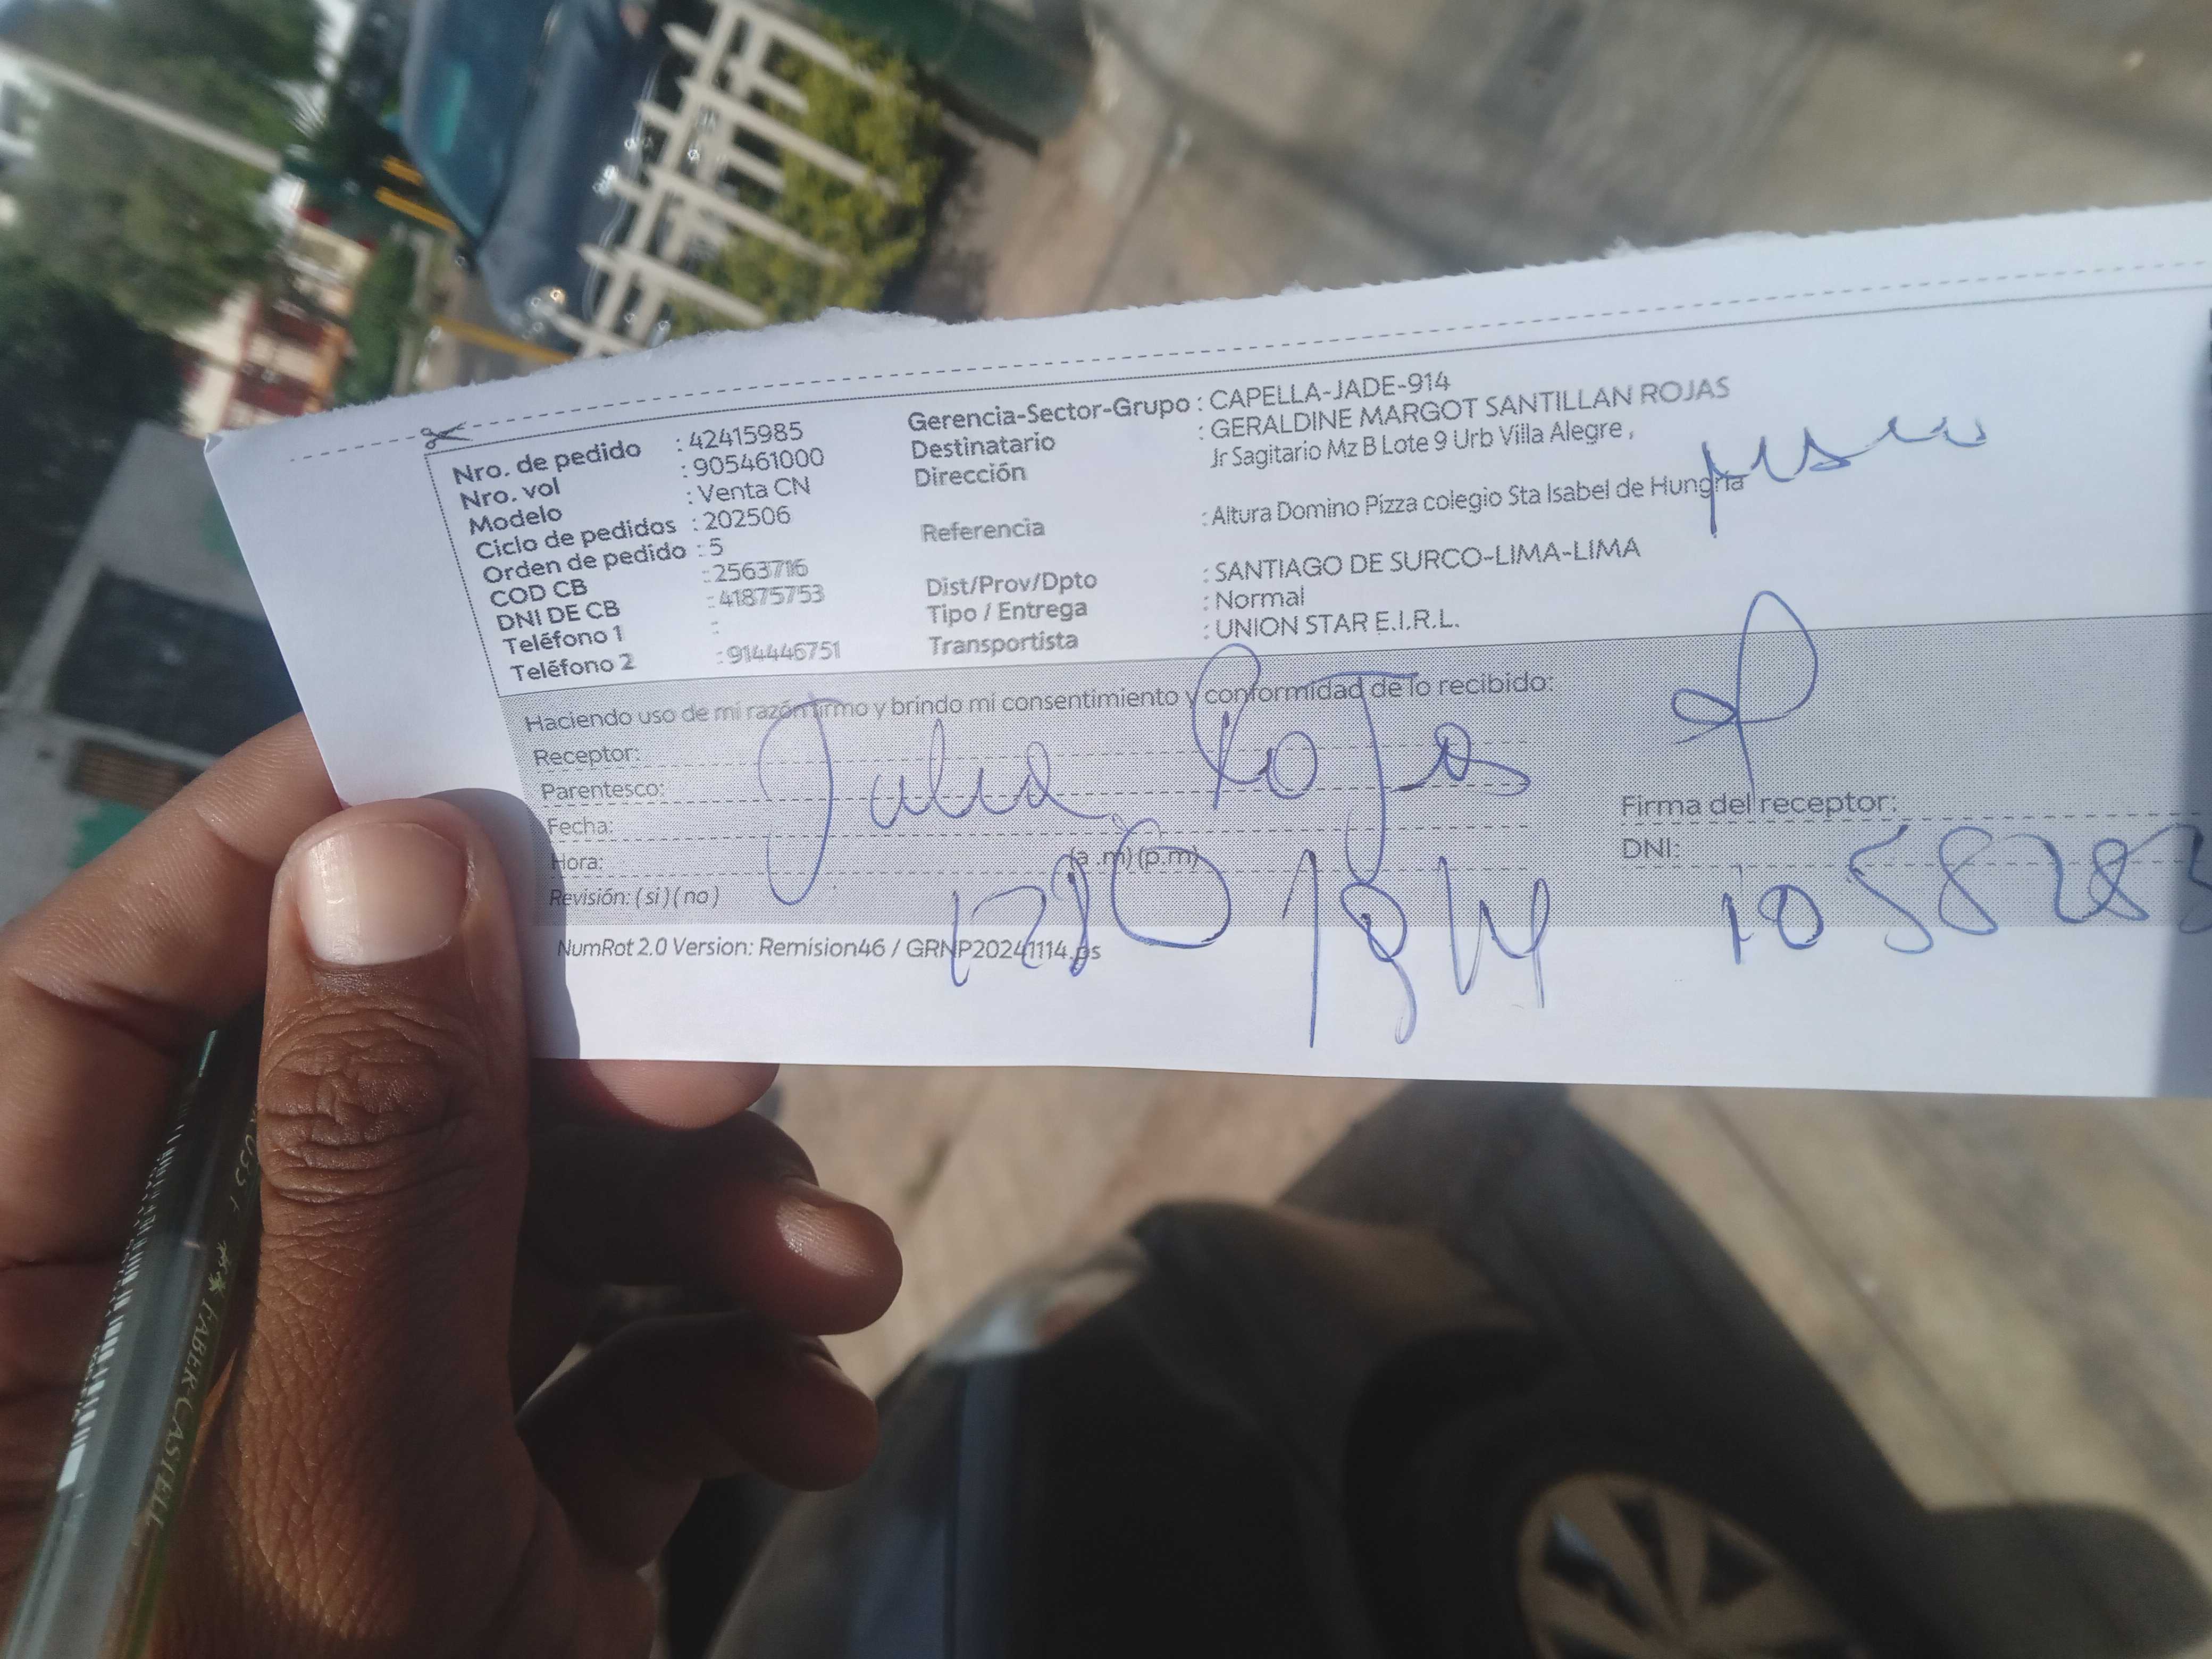 Nro. de pedido : 42415985
Nro. vol : 905461000
Modelo : Venta CN
Ciclo de pedidos : 202506
Orden de pedido : 5
COD CB : 2563716
DNI DE CB : 41875753
Teléfono 1 :
Teléfono 2 : 914446751
Gerencia-Sector-Grupo : CAPELLA-JADE-914
Destinatario : GERALDINE MARGOT SANTILLAN ROJAS
Dirección : Jr Sagitario Mz B Lote 9 Urb Villa Alegre ,
Referencia : Altura Domino Pizza colegio Sta Isabel de Hungria
Dist/Prov/Dpto : SANTIAGO DE SURCO-LIMA-LIMA
Tipo / Entrega : Normal
Transportista : UNION STAR E.I.R.L.
Haciendo uso de mi razón firmo y brindo mi consentimiento y conformidad de lo recibido:
Receptor: Julia Rojas
Parentesco:
Fecha:
Hora: (a .m) (p.m)
Revisión: ( si ) ( no )
Firma del receptor:
DNI: 1058283
NumRot 2.0 Version: Remision46 / GRNP20241114.ps
FABER-CASTELL